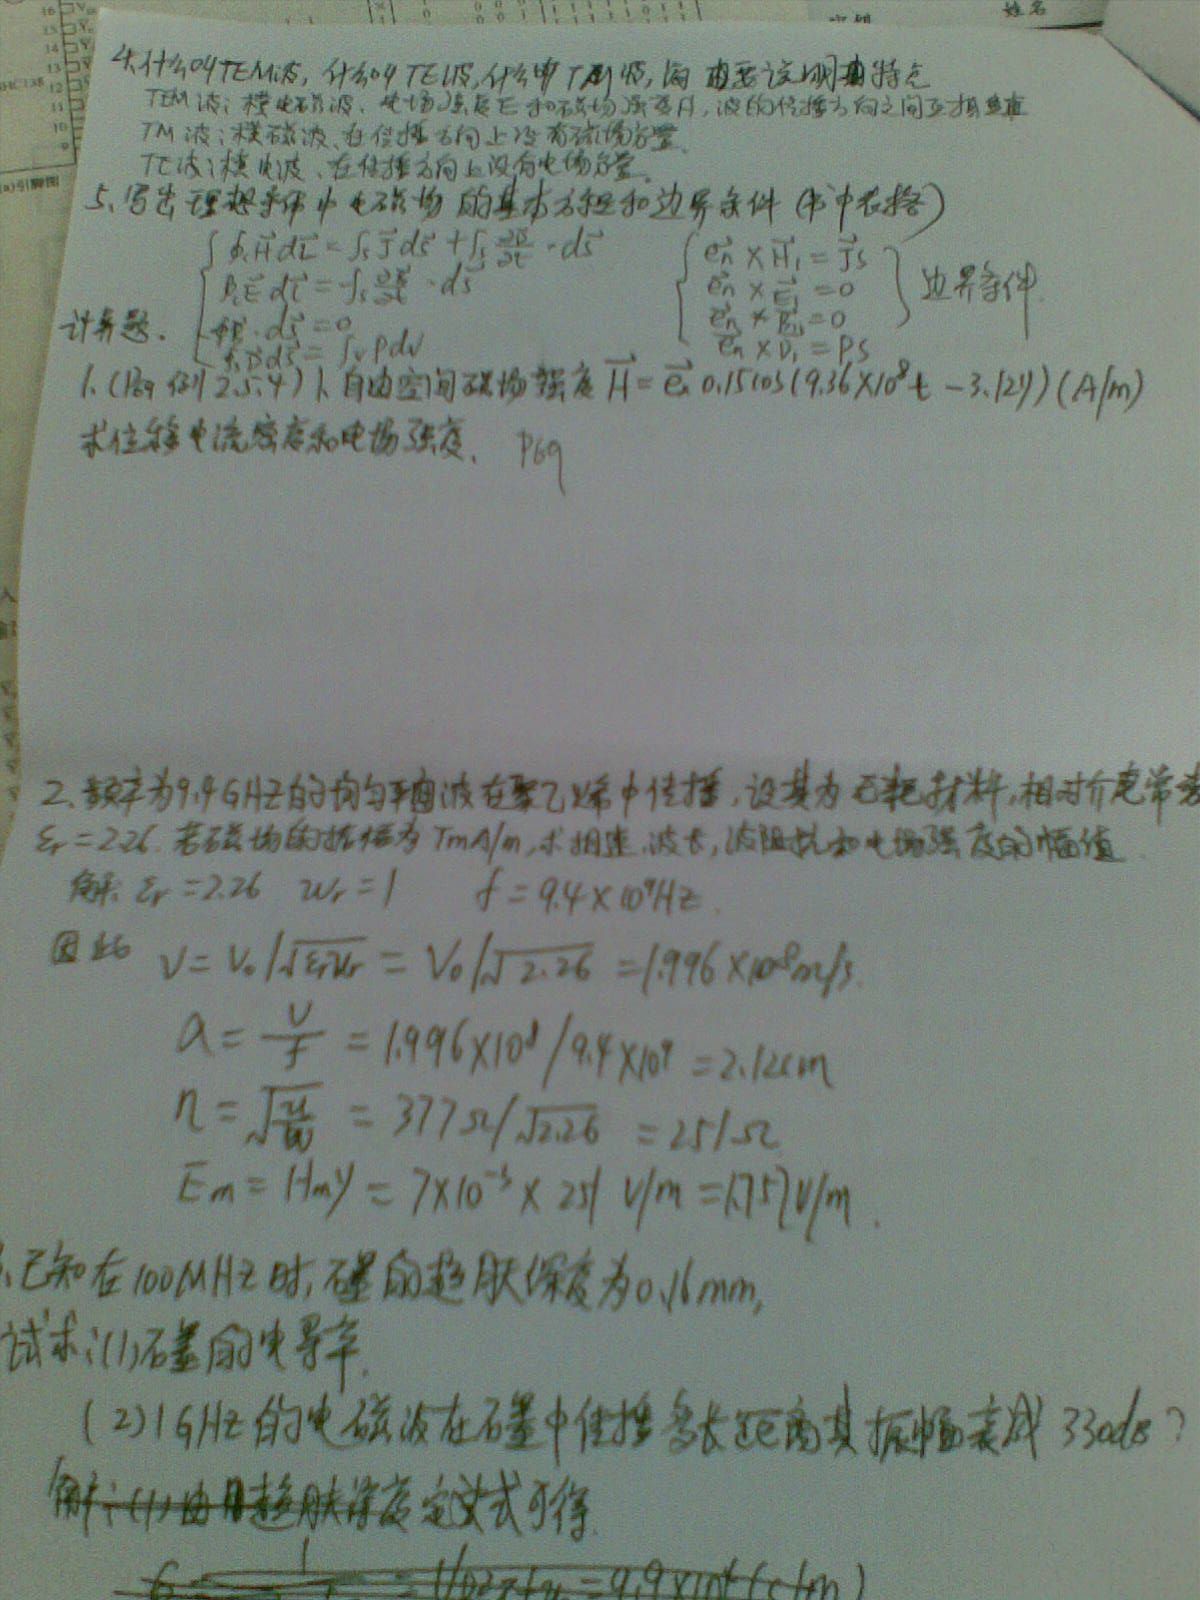 姓名
16
15
14
13
12
11
10
9
(a)引脚图
4.什么叫TEM波,什么叫TE波,什么叫TM波,简要说明其特点
TEM波:横电磁波、电场强度E和磁场强度H,波的传播方向之间互相垂直
TM波:横磁波、在传播方向上没有磁场分量.
TE波:横电波、在传播方向上没有电场分量.
5、写出理想导体中电磁场的基本方程和边界条件(书中表格)
∮cH⃗dl⃗=∫sJ⃗ds⃗+∫s∂D⃗/∂t·ds⃗ e⃗n×H⃗1=J⃗s
∮cE⃗dl⃗=∫s∂B⃗/∂t·ds⃗ e⃗n×E⃗1=0 边界条件.
∮B⃗·ds⃗=0 e⃗n×B⃗1=0
计算题. ∮sD⃗ds⃗=∫vρdv e⃗n×D⃗1=ρs
1.(P69例2.5.4)1、自由空间磁场强度H⃗=e⃗x0.15cos(9.36×10⁸t-3.12y)(A/m)
求位移电流密度和电场强度、 P69
2、频率为9.4GHZ的均匀平面波在聚乙烯中传播,设其为无耗材料,相对介电常数
εr=2.26.若磁场的振幅为7mA/m,求相速.波长,波阻抗和电场强度的幅值.
解:εr=2.26 ur=1 f=9.4×10⁹Hz.
因此 V=V₀/√εrur=V₀/√2.26=1.996×10⁸m/s.
λ=v/f=1.996×10⁸/9.4×10⁹=2.12cm
η=√u/ε=377Ω/√2.26=251Ω
Em=Hmη=7×10⁻³×251 V/m=1.757V/m.
3、已知在100MHZ时,石墨的趋肤深度为0.16mm,
试求:(1)石墨的电导率.
(2)1GHZ的电磁波在石墨中传播多长距离其振幅衰减30dB?
解:(1)由趋肤深度定义式可得.